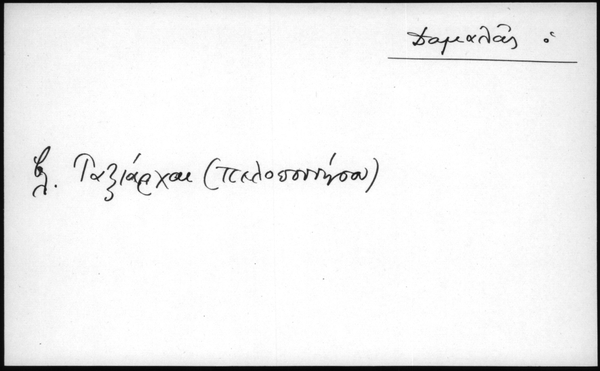 Δαμαλᾶς ὁ
βλ. Ταξιάρχαι (Πελοποννήσου)